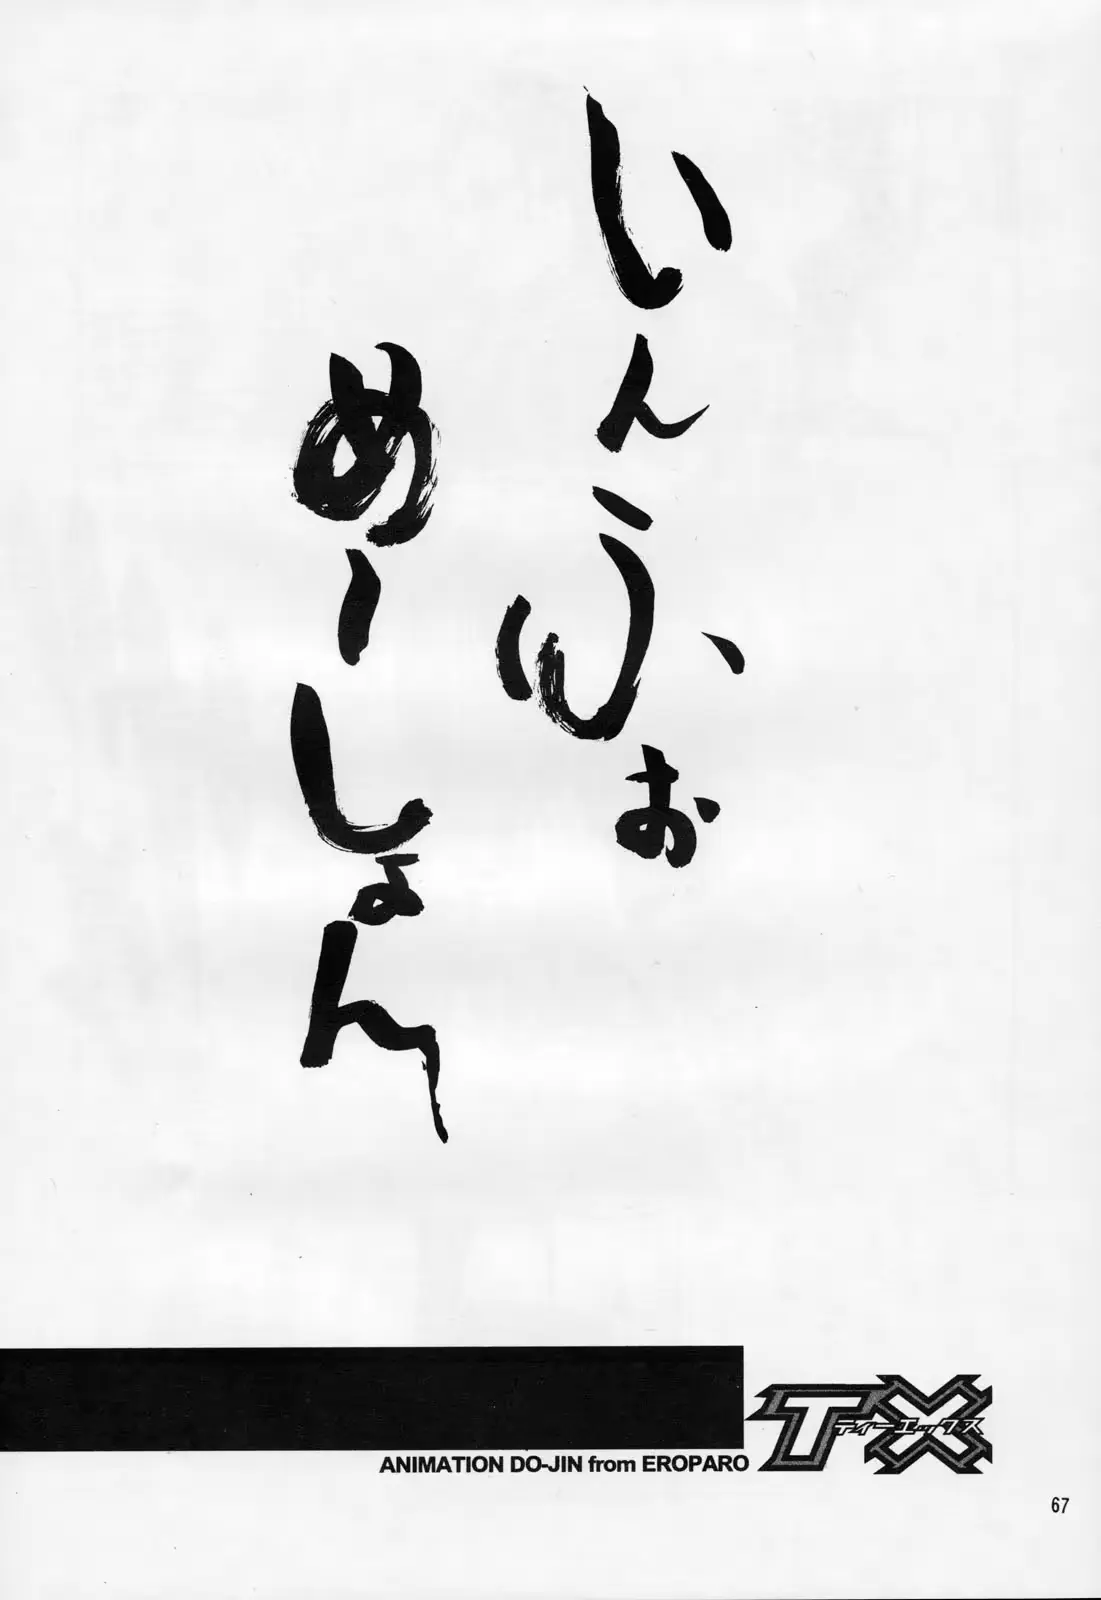 いんふぉ
めーしょん
TX
ティーエックス
ANIMATION DO-JIN from EROPARO
67